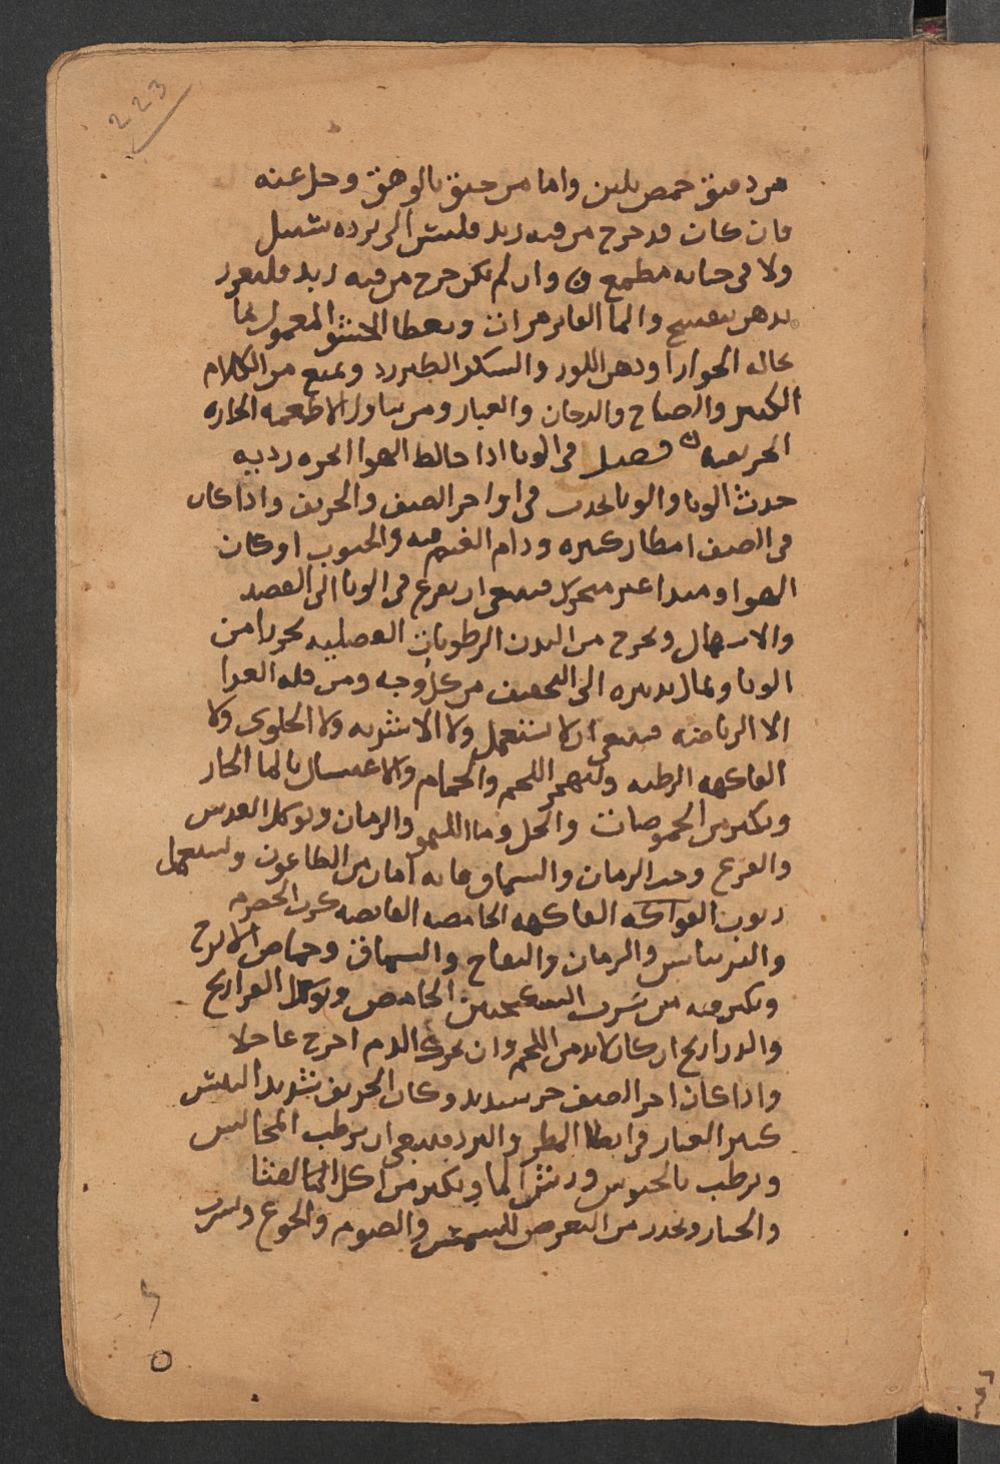 223
من دقيق حمص بلبن واما من خنق بالوهق وحل عنه
فان كان قد خرج من فيه زبد فليس الى برده سبيل
ولا في حياته مطمع وان لم يكن خرج من فيه زبد فليغرغر
بدهن بنفسج والما الفاتر مرات ويعطا الحشو المعمول بما
نخاله الحوارا ودهن اللوز والسكر الطبرزد ويمنع من الكلام
الكثير والصياح والدخان والغبار ومن تناول الاطعمه الحاره
الحريفه فصل في الوبا اذا خالط الهوا ابخره رديه
حدث الوبا والوبا يحدث في اواخر الصيف والخريف واذا كان
في الصيف امطار كثيره ودام الغيم فيه والجنوب او كان
الهوا ومدا غير متحرك فينبغي ان يفزع في الوبا الى الفصد
والاسهال ويخرج من البدن الرطوبات الفضليه تحرزا من
الوبا ويمال بتدبيره الى التجفيف من كل وجه ومن قله الغدا
الا الرياضه فينبغي ان لا تستعمل ولا الاشربه ولا الحلوى ولا
الفاكهه الرطبه وليهجر اللحم والحمام والاغتسال بالما الحار
ويكثر من الحموضات والخل وما الليمو والرمان ويوكل العدس
والقرع وحب الرمان والسماق فانه امان من الطاعون وليستعمل
ربوب الفواكه الفاكهه الحامضه القابضه كرب الحصرم
والريباس والرمان والتفاح والسماق وحماض الاترج
ويكثر فيه من شرب السكنجبين الحامض ويوكل الفراريج
والدراريج ان كان لابد من اللحم وان تحرك الدم اخرج عاجلا
واذا كان اخر الصيف حر شديد وكان الخريف شديد اليبس
كثير الغبار وابطا المطر والبرد فينبغي ان يرطب المجالس
ويرطب بالخيوش ورش الما ويكثر من اكل القثا
والخيار ويحذر من التعرض للشمس والصوم والجوع وشرب